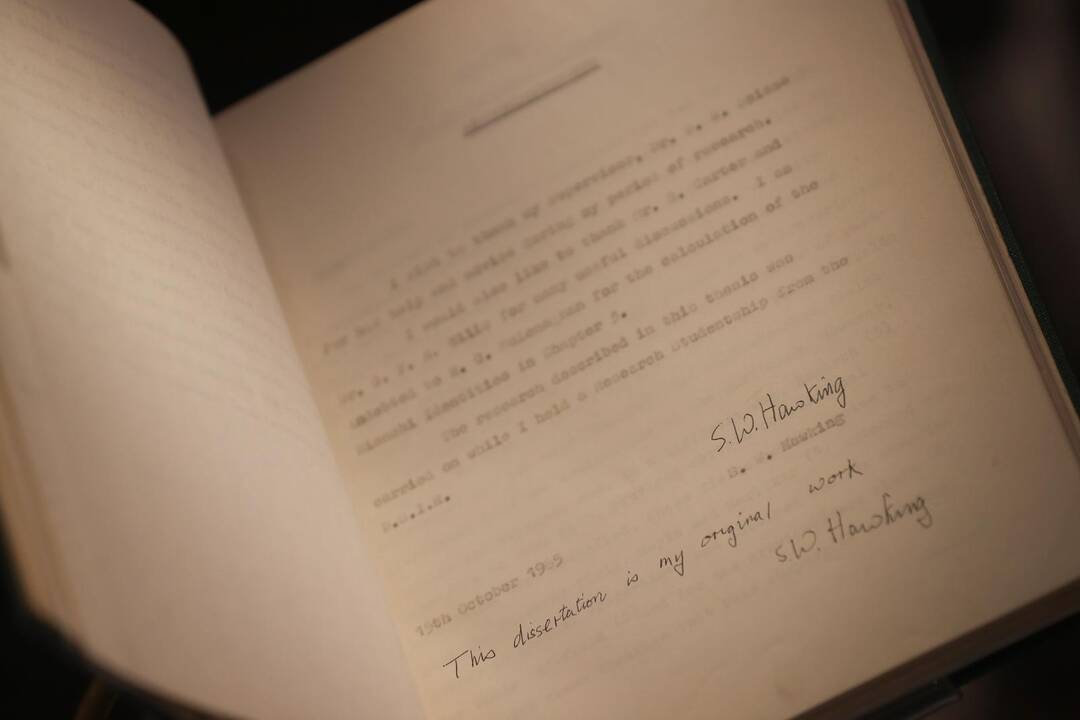 I wish to thank my supervisor, Dr. D. W.
for his help and advice during my period of research.
I would also like to thank Mr. B. Carter and
Mr. G. F. R. Ellis for many useful discussions. I am
indebted to R. G. for the calculation of the
Bianchi identities in Chapter
The research described in this thesis was
carried on while I held a Research Studentship from the
D.S.I.R.
S.W. Hawking
S. W. Hawking
15th October 1965
This dissertation is my original work
S.W. Hawking